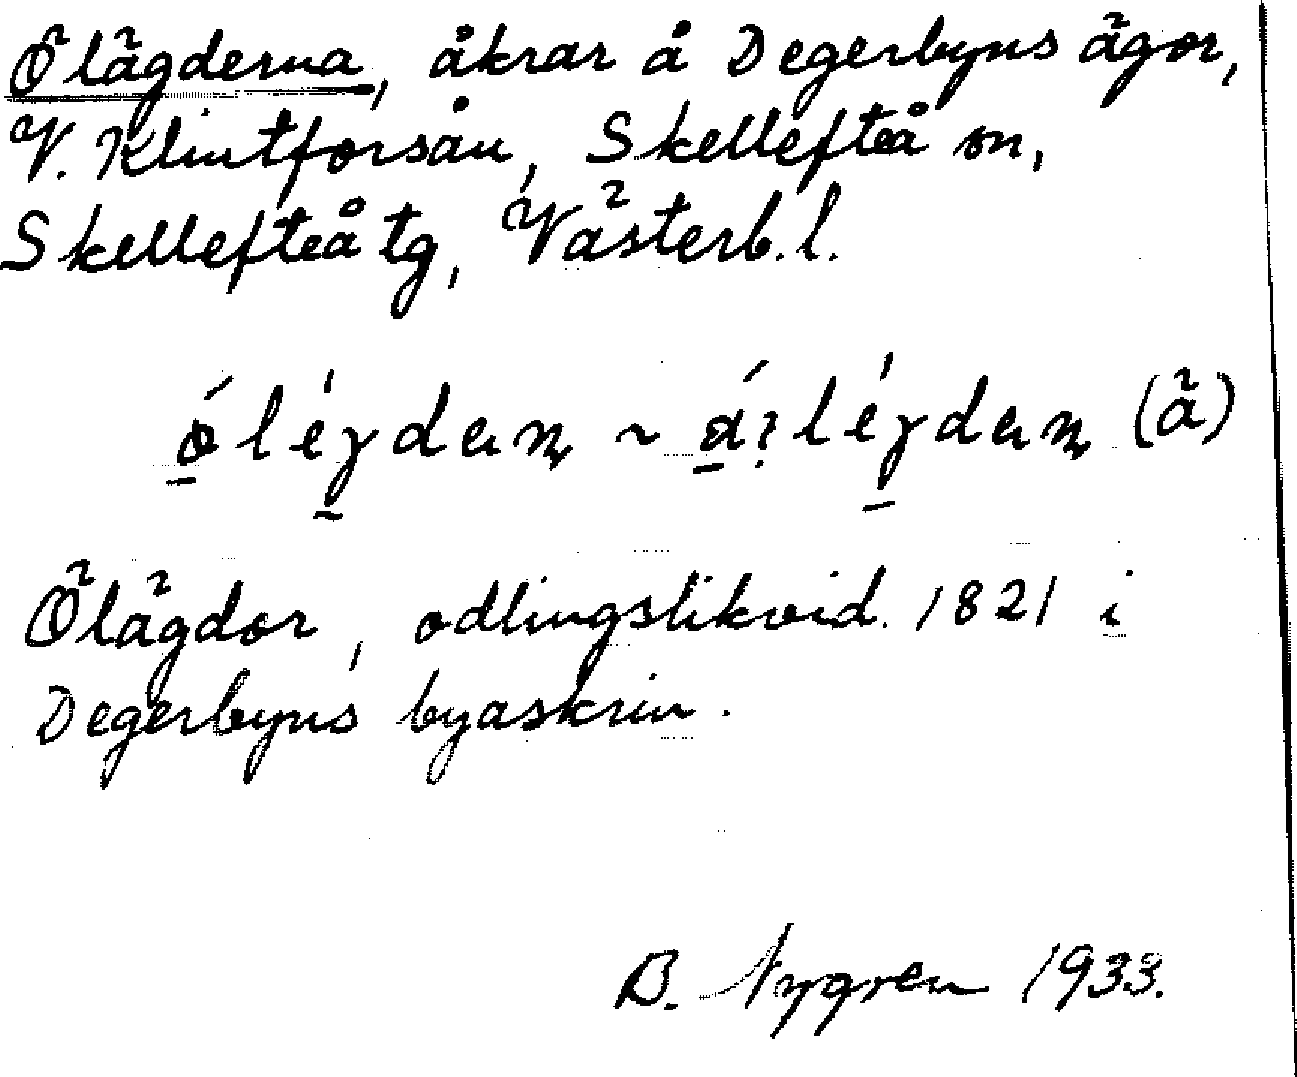 Ölägderna, åkrar å Degerbyns ägor,
V. Klintforsån, Skellefteå sn,
Skellefteå tg, Västerb. l.
ó̱léɣdeɴ ~ á̱ːléɣdeɴ (ä)
Ölägdor, odlingslikvid. 1821 i
Degerbyns byaskrin.
B. Nygren 1933.